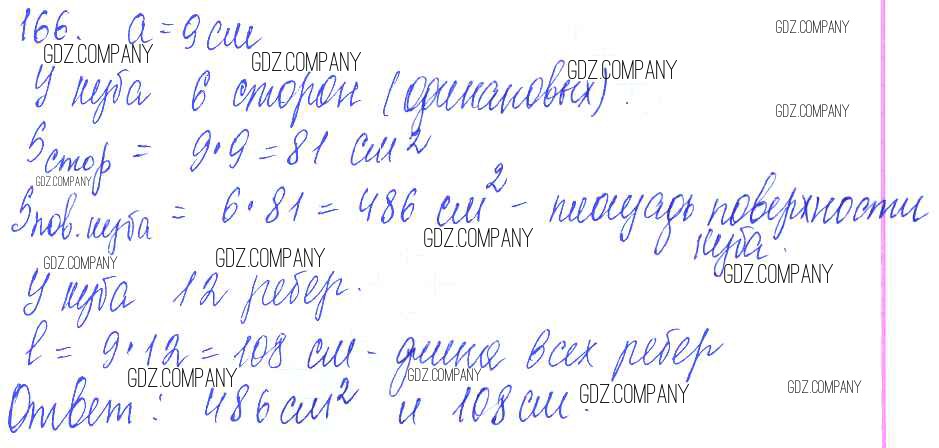 166. a = 9 см
GDZ.COMPANY
GDZ.COMPANY GDZ.COMPANY GDZ.COMPANY
У куба 6 сторон (одинаковых).
GDZ.COMPANY
Sстор = 9·9 = 81 см²
GDZ.COMPANY
Sпов. куба = 6·81 = 486 см² - площадь поверхности
куба.
GDZ.COMPANY
GDZ.COMPANY GDZ.COMPANY GDZ.COMPANY
У куба 12 ребер.
l = 9·12 = 108 см - длина всех ребер
GDZ.COMPANY GDZ.COMPANY GDZ.COMPANY GDZ.COMPANY
Ответ: 486 см² и 108 см.